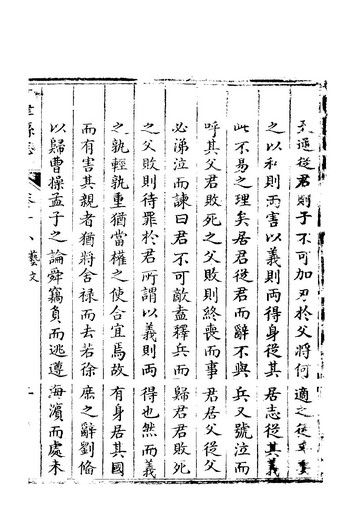 君則子不可加刃於父將何適之從
之以利則兩害以義則兩得身從其居志從其義
此不易之理矣居君從君而辭不與兵又號泣而
呼其父君敗死之父敗則終喪而事君居父從父
必涕泣而諫曰君不可敵盍釋兵而歸君君敗死
之父敗則待罪於君所謂以義則兩得也然而義
之孰輕孰重猶當權之使合宜焉故有身居其國
而有害其親者猶將舍禄而去若徐庶之辭劉備
以歸曹操孟子之論舜竊負而逃遵海濱而處未
藝文